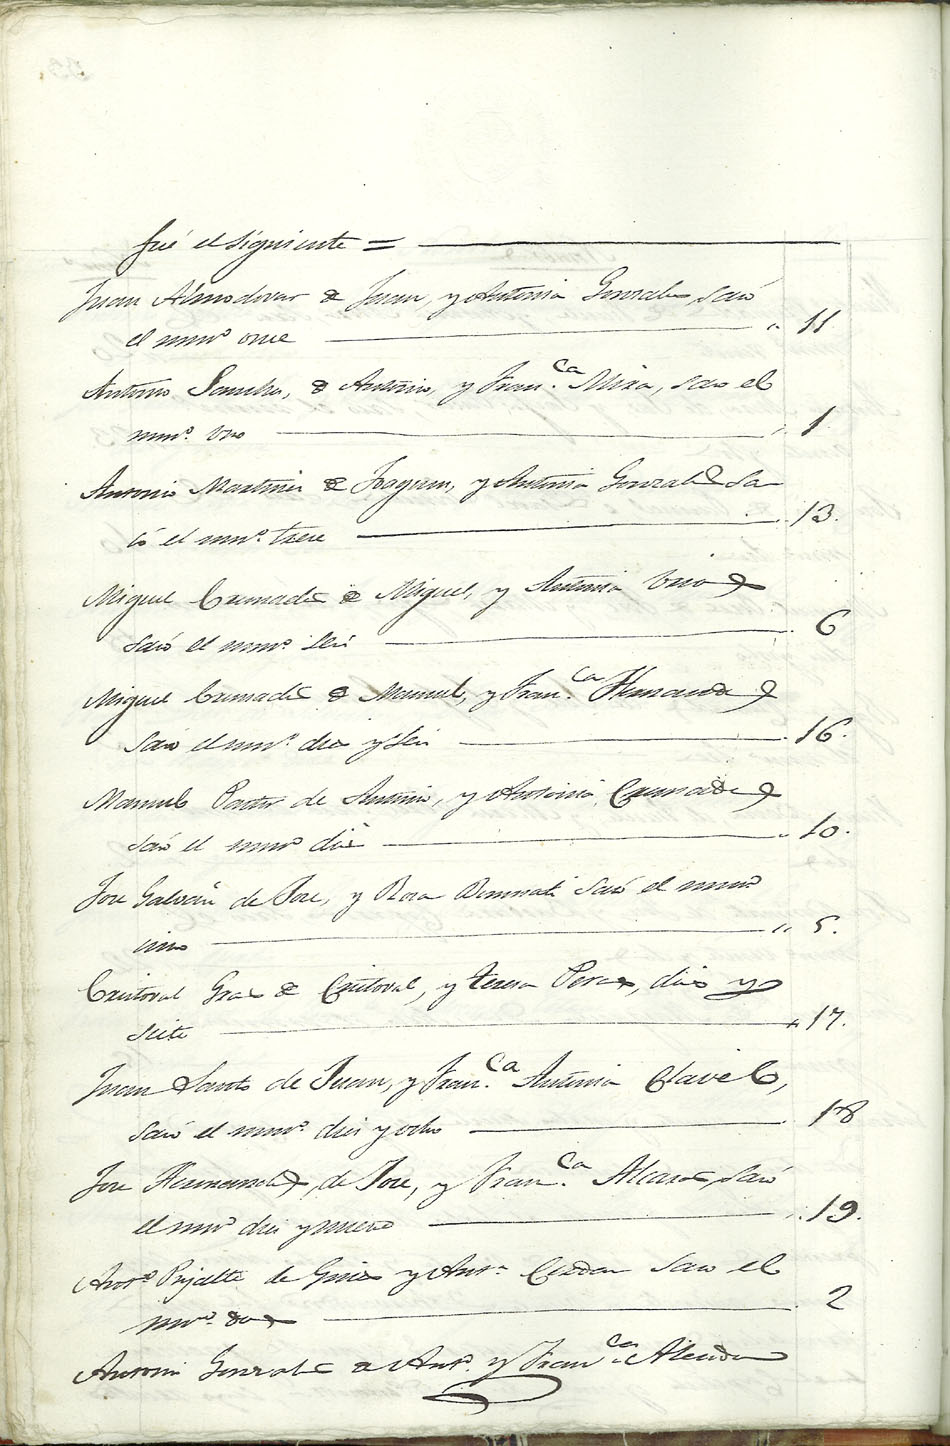 fué el siguiente =
Juan Almodovar de Juan, y Antonia Gonzalez, sacó
el num.o once 11
Antonio Sanchez, de Antonio, y Fran.ca Mira, saco el
num.o uno 1
Antonio Martinez de Joaquin, y Antonia Gonzalez sa
có el num.o trece 13.
Miguel Cremades de Miguel, y Antonia
sacó el num.o seis 6
Miguel Cremades de Manuel, y Fran.ca Hernandez
sacó el num.o diez y seis 16.
Manuel Pastor de Antonio, y Antonia Cremades
sacó el num.o diez 10.
Jose Galvañ de Jose, y Rosa sacó el num.o
cinco 5.
Cristoval Gras de Cristoval, y Teresa Perez, diez y
siete 17.
Juan Santo de Juan, y Fran.ca Antonia Clavel,
sacó el num.o diez y ocho 18
Jose Hernandez, de Jose, y Fran.ca Alcaraz, sacó
el num.o diez y nueve 19.
Ant.o Pujalte de Gines y Ant.a Cerdan saco el
num.o dos 2
Antonio Gonzalez de Ant.o y Fran.ca